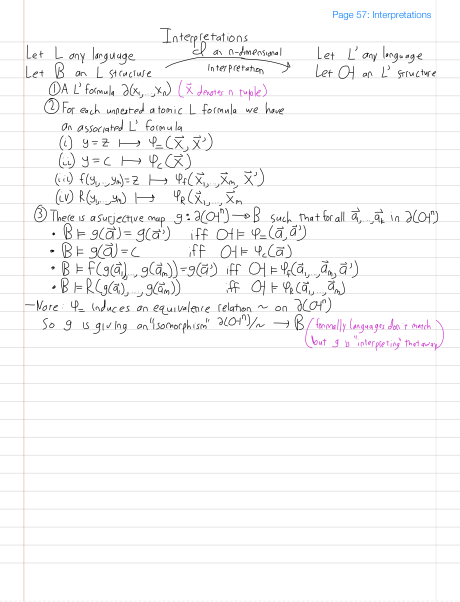 Page 57: Interpretations
Interpretations
Let L any language
an n-dimensional
Let L' any language
Let B an L structure
Interpretation
Let 𝔄 an L' structure
① A L' formula ∂(x₁,...,xₙ) (x⃗ denotes n tuple)
② For each unnested atomic L formula we have
an associated L' formula
(i) y=z ⟼ φ₌(x⃗, x⃗')
(ii) y=c ⟼ φ_c(x⃗)
(iii) f(y₁,...,yₘ)=z ⟼ φ_f(x⃗₁,...,x⃗ₘ, x⃗')
(iv) R(y₁,...,yₘ) ⟼ φ_R(x⃗₁,...,x⃗ₘ
③ There is a surjective map g: ∂(𝔄ⁿ) → B such that for all a⃗₁,...,a⃗ₖ in ∂(𝔄ⁿ)
• B ⊨ g(a⃗) = g(a⃗') iff 𝔄 ⊨ φ₌(a⃗, a⃗')
• B ⊨ g(a⃗) = c iff 𝔄 ⊨ φ_c(a⃗)
• B ⊨ f(g(a⃗₁),...,g(a⃗ₘ)) = g(a⃗') iff 𝔄 ⊨ φ_f(a⃗₁,...,a⃗ₘ, a⃗')
• B ⊨ R(g(a⃗₁),...,g(a⃗ₘ)) iff 𝔄 ⊨ φ_R(a⃗₁,...,a⃗ₘ)
– Note: φ₌ induces an equivalence relation ~ on ∂(𝔄ⁿ)
So g is giving an "isomorphism" ∂(𝔄ⁿ)/~ → B (formally languages don't match
but g is "interpreting" that away)